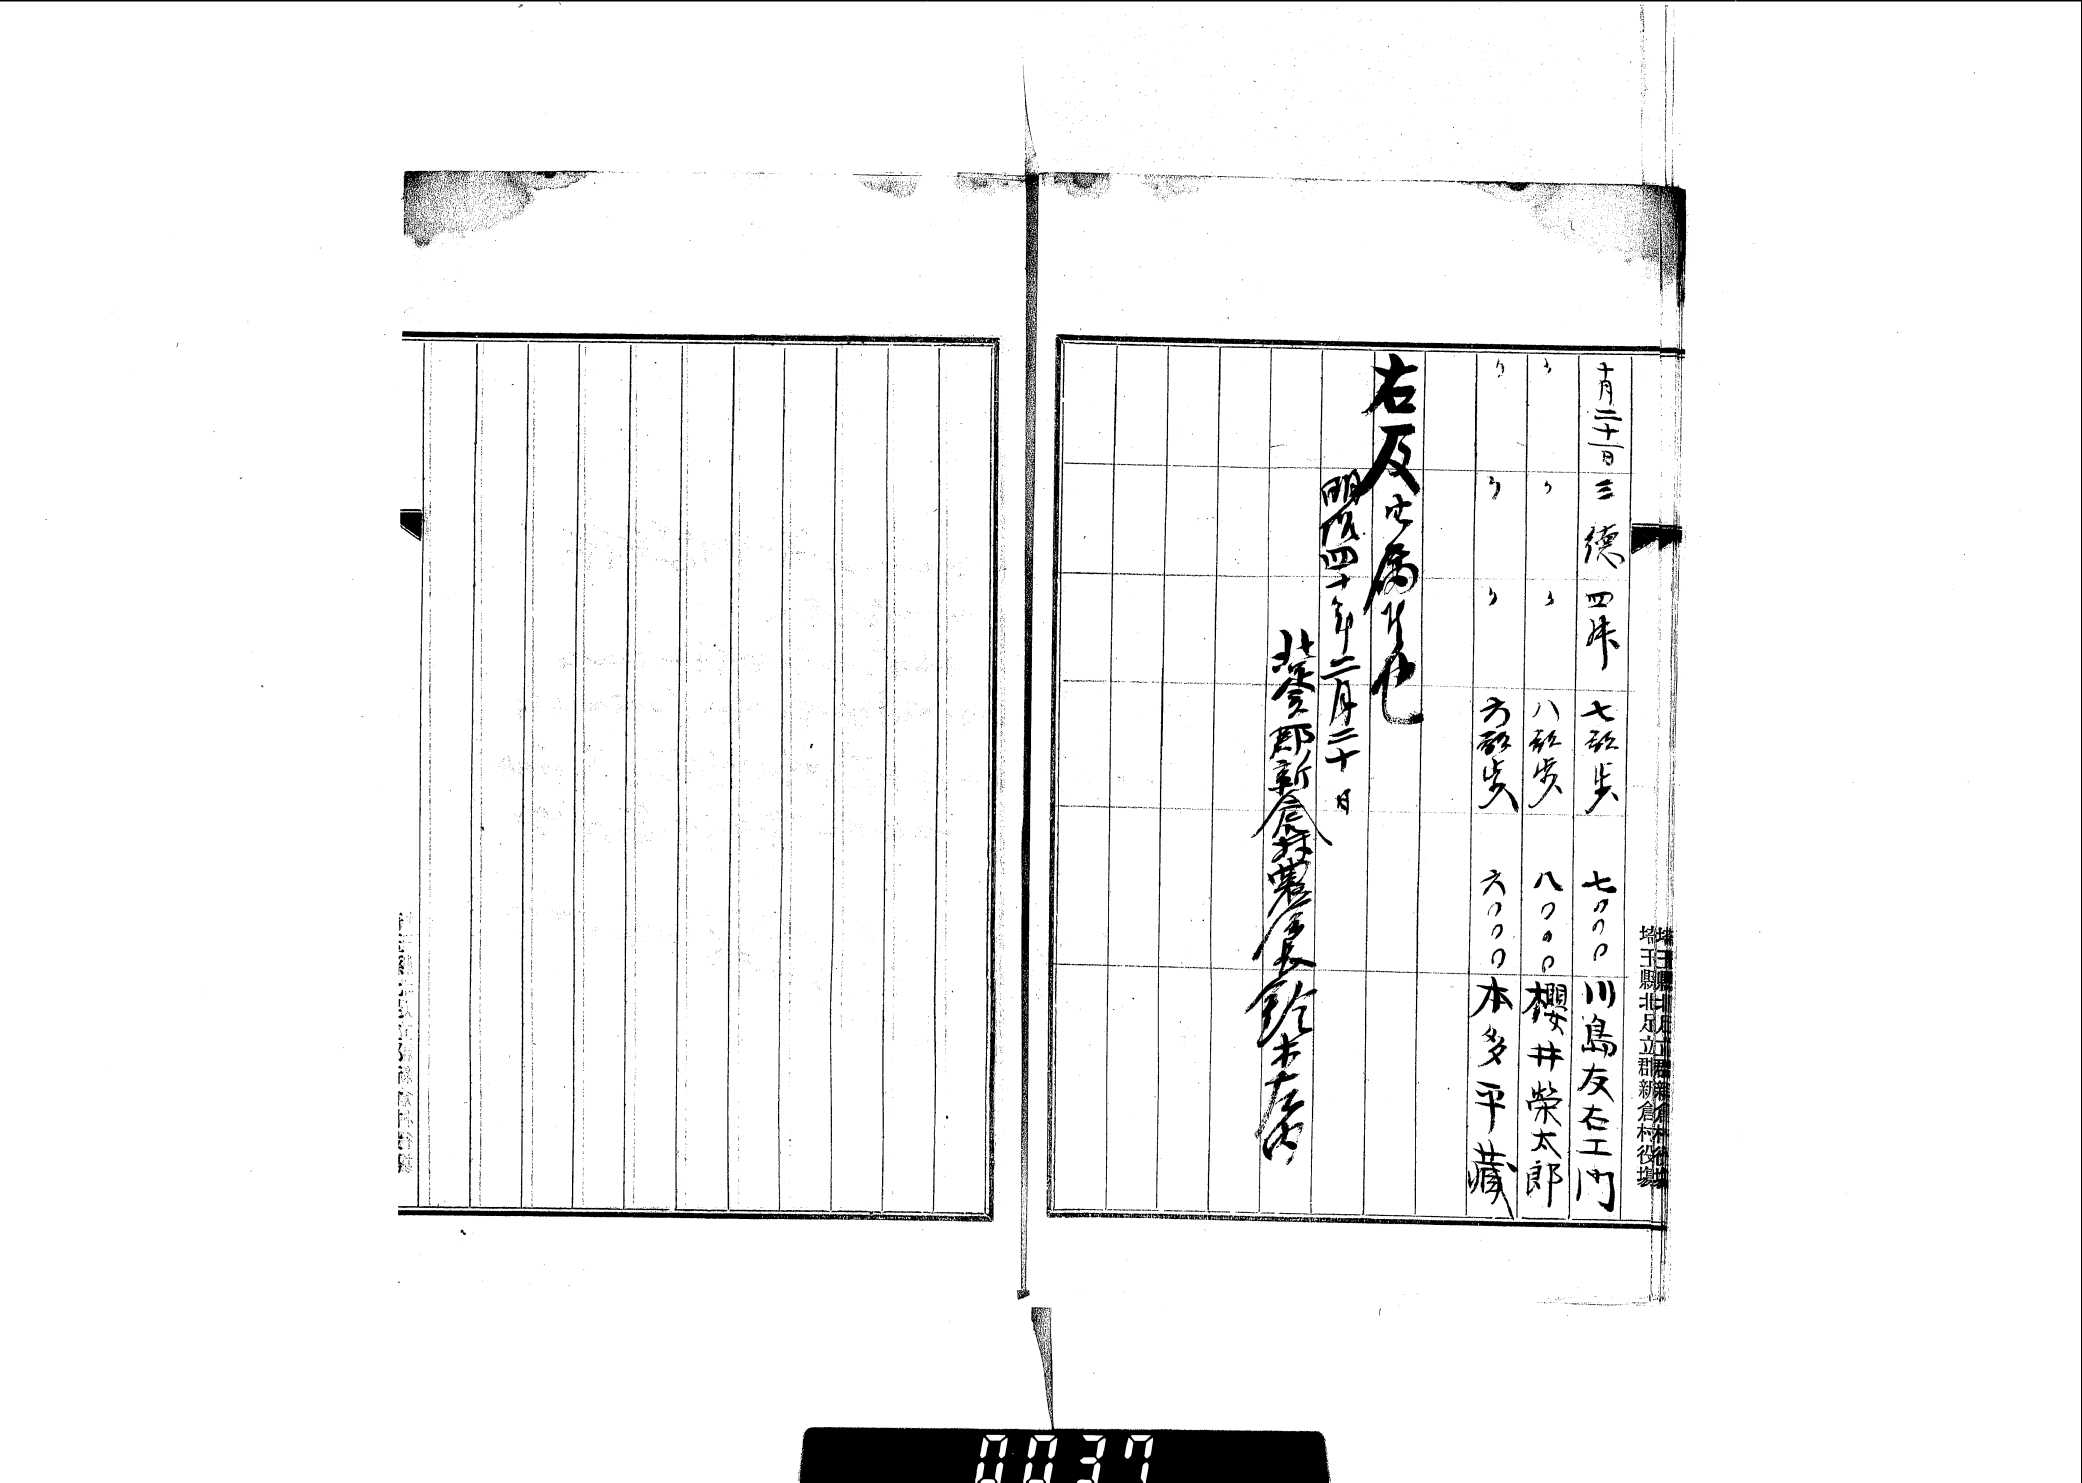 十月二十一日 三德 四升 七畝歩 七〇〇〇 川島友右エ門
〃 〃 〃 八畝歩 八〇〇〇 櫻井榮太郎
〃 〃 〃 六畝歩 六〇〇〇 本多平藏
右及 也
明治四十年二月二十日
北 郡新倉村農 長 鈴木左内
埼玉縣北足立郡新倉村役場
0037